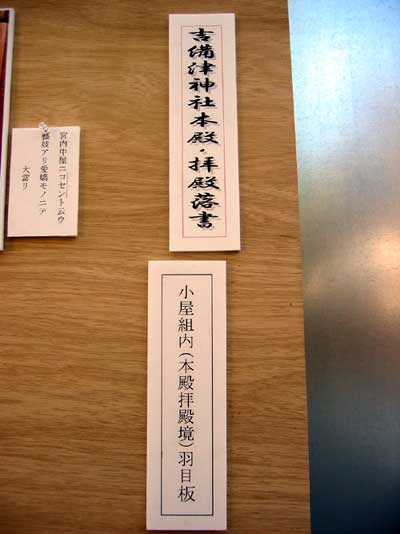 吉備津神社本殿・拝殿落書
小屋組内(本殿拝殿境)羽目板
宮内中屋ニコセントムウ
藝妓アリ愛嬌モノニテ
大當リ